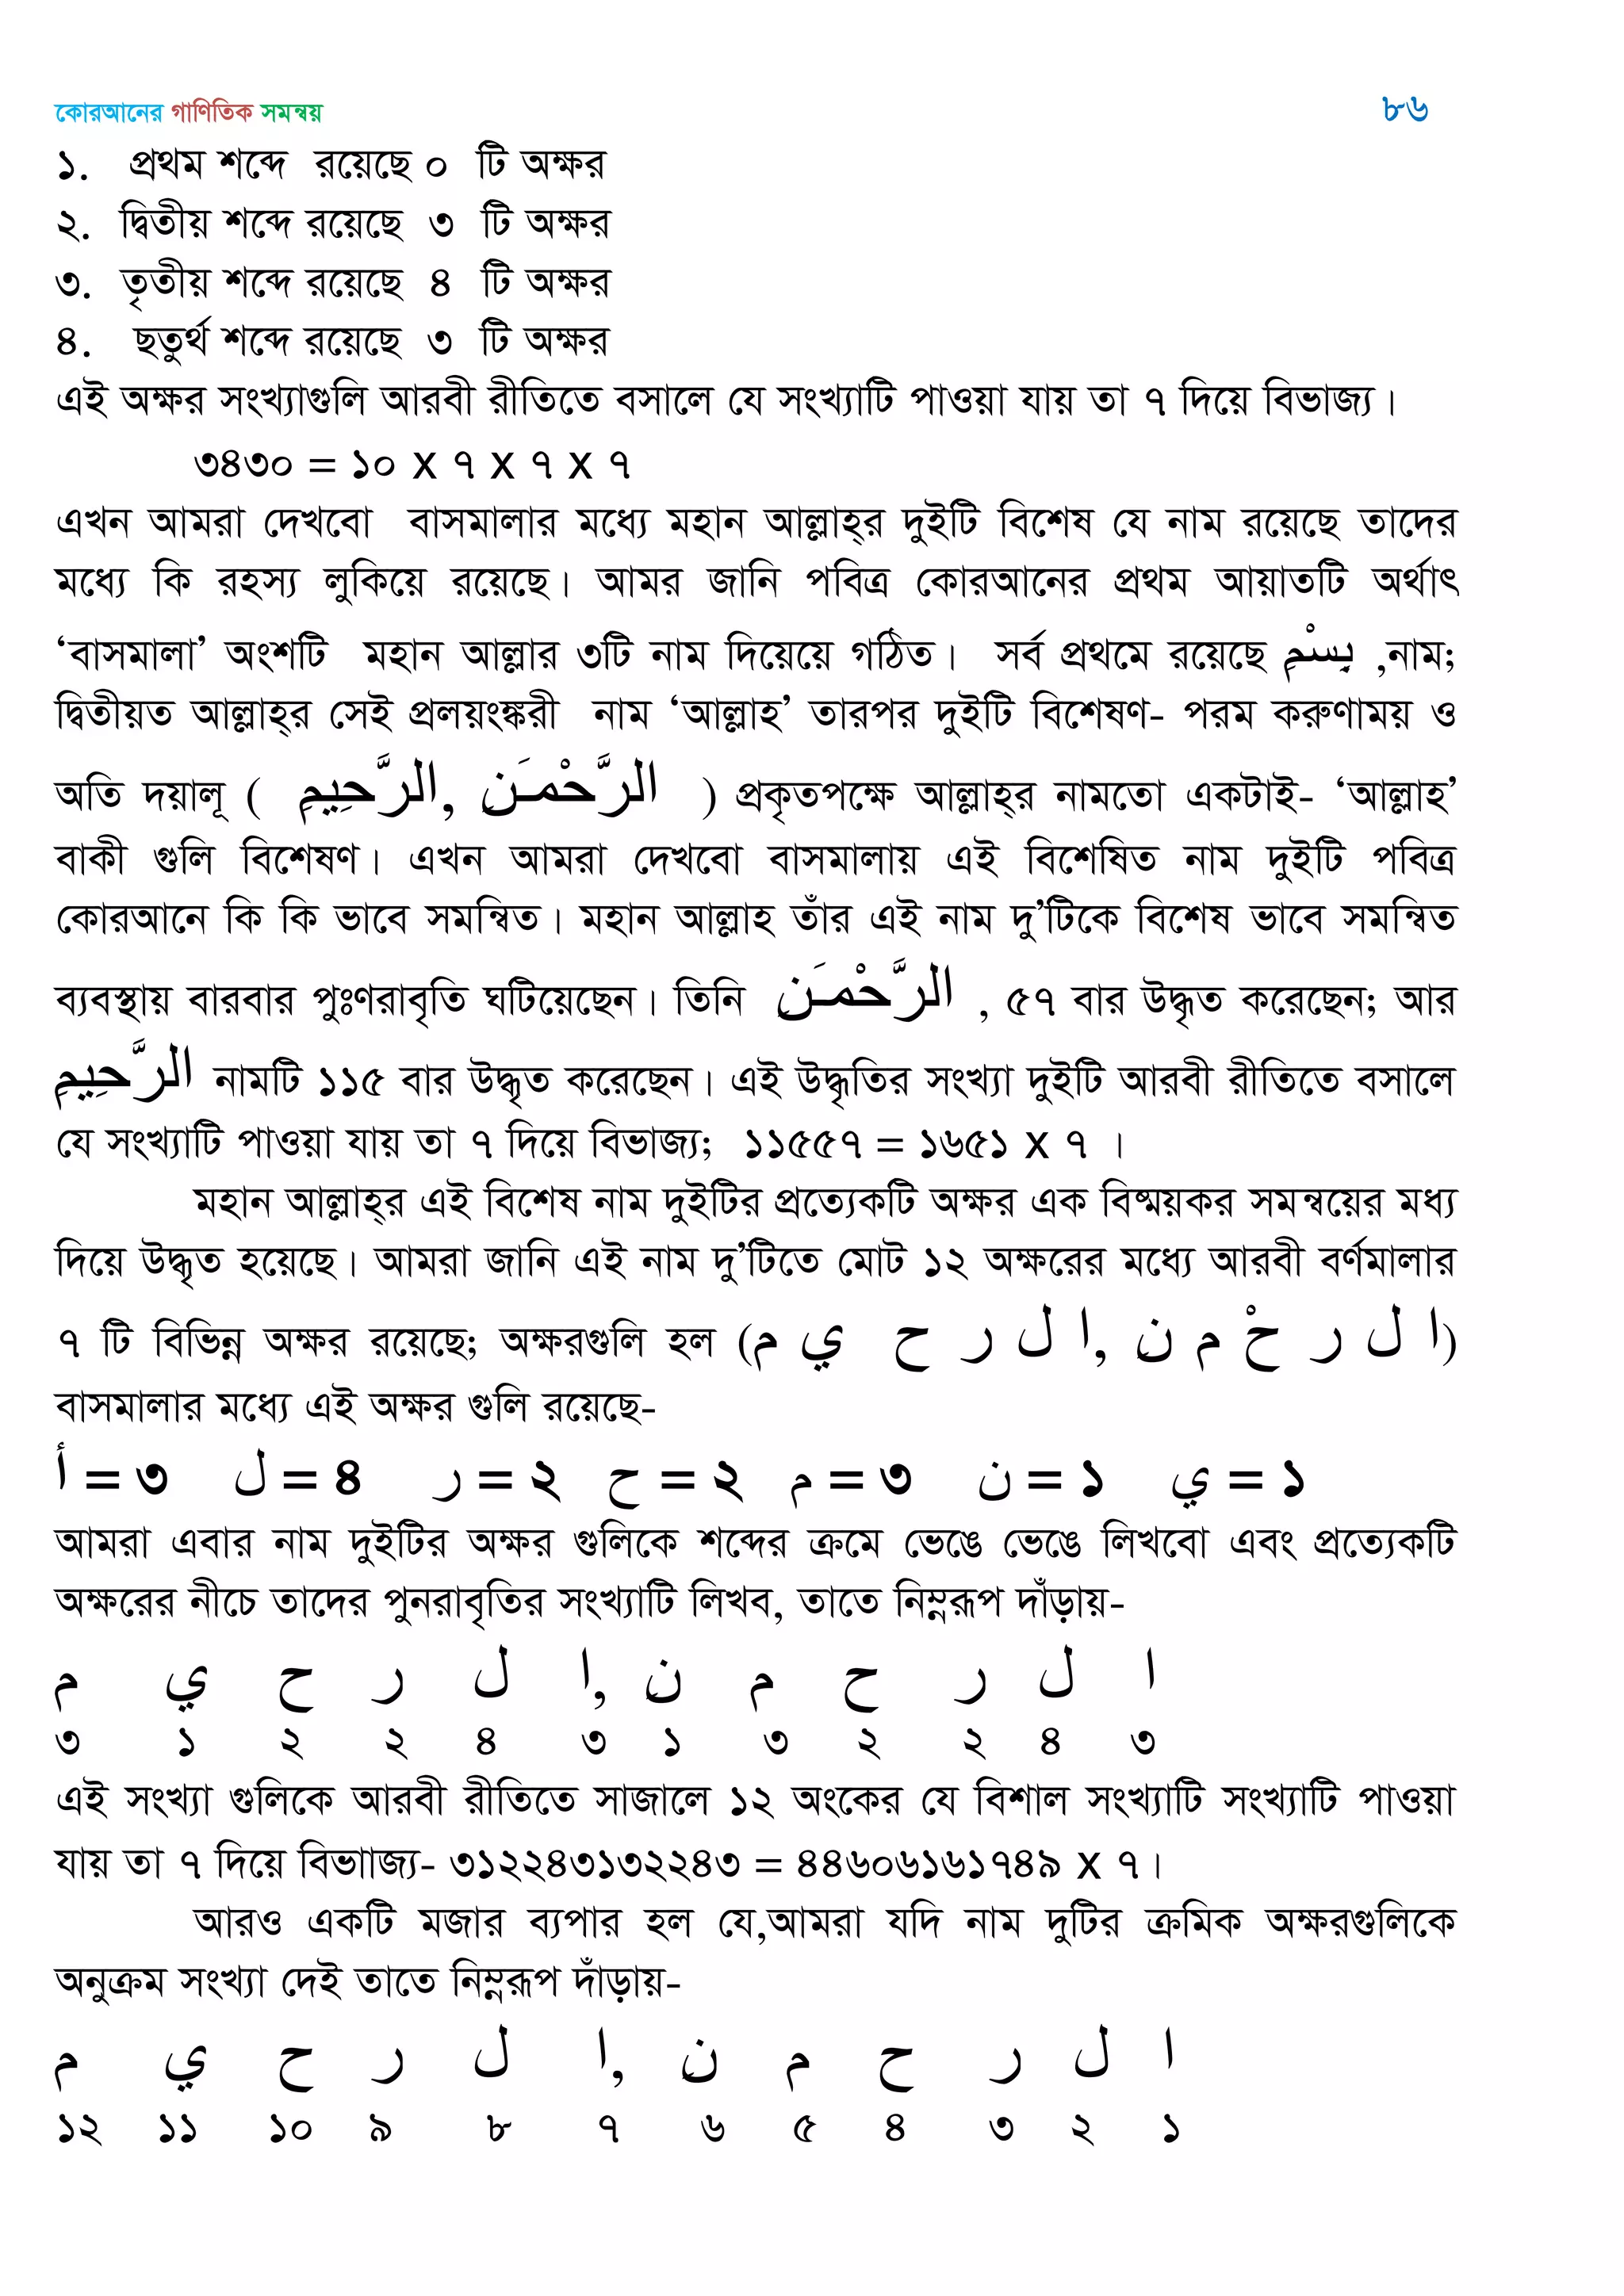 কোরআনের গাণিতিক সমন্বয় ৮৬
১. প্রথম শব্দে রয়েছে ০ টি অক্ষর
২. দ্বিতীয় শব্দে রয়েছে ৩ টি অক্ষর
৩. তৃতীয় শব্দে রয়েছে ৪ টি অক্ষর
৪. ছতুর্থ শব্দে রয়েছে ৩ টি অক্ষর
এই অক্ষর সংখ্যাগুলি আরবী রীতিতে বসালে যে সংখ্যাটি পাওয়া যায় তা ৭ দিয়ে বিভাজ্য।
৩৪৩০ = ১০ x ৭ x ৭ x ৭
এখন আমরা দেখবো বাসমালার মধ্যে মহান আল্লাহ্‌র দুইটি বিশেষ যে নাম রয়েছে তাদের
মধ্যে কি রহস্য লুকিয়ে রয়েছে। আমর জানি পবিত্র কোরআনের প্রথম আয়াতটি অর্থাৎ
‘বাসমালা’ অংশটি মহান আল্লার ৩টি নাম দিয়েয়ে গঠিত। সর্ব প্রথমে রয়েছে بِسْمِ ,নাম;
দ্বিতীয়ত আল্লাহ্‌র সেই প্রলয়ংঙ্করী নাম ‘আল্লাহ’ তারপর দুইটি বিশেষণ- পরম করুণাময় ও
অতি দয়ালূ ( الرَّحْمَـٰنِ ,الرَّحِيمِ ) প্রকৃতপক্ষে আল্লাহ্‌র নামতো একটাই- ‘আল্লাহ’
বাকী গুলি বিশেষণ। এখন আমরা দেখবো বাসমালায় এই বিশেষিত নাম দুইটি পবিত্র
কোরআনে কি কি ভাবে সমন্বিত। মহান আল্লাহ তাঁর এই নাম দু’টিকে বিশেষ ভাবে সমন্বিত
ব্যবস্থায় বারবার পুঃণরাবৃতি ঘটিয়েছেন। তিনি الرَّحْمَـٰنِ , ৫৭ বার উদ্ধৃত করেছেন; আর
الرَّحِيمِ নামটি ১১৫ বার উদ্ধৃত করেছেন। এই উদ্ধৃতির সংখ্যা দুইটি আরবী রীতিতে বসালে
যে সংখ্যাটি পাওয়া যায় তা ৭ দিয়ে বিভাজ্য; ১১৫৫৭ = ১৬৫১ x ৭ ।
মহান আল্লাহ্‌র এই বিশেষ নাম দুইটির প্রত্যেকটি অক্ষর এক বিষ্ময়কর সমন্বয়ের মধ্য
দিয়ে উদ্ধৃত হয়েছে। আমরা জানি এই নাম দু’টিতে মোট ১২ অক্ষরের মধ্যে আরবী বর্ণমালার
৭ টি বিভিন্ন অক্ষর রয়েছে; অক্ষরগুলি হল (ا ل ر حْ م نِ ,ا ل ر ح ي م)
বাসমালার মধ্যে এই অক্ষর গুলি রয়েছে-
أ = ৩ ل = ৪ ر = ২ ح = ২ م = ৩ ن = ১ ي = ১
আমরা এবার নাম দুইটির অক্ষর গুলিকে শব্দের ক্রমে ভেঙে ভেঙে লিখবো এবং প্রত্যেকটি
অক্ষরের নীচে তাদের পুনরাবৃতির সংখ্যাটি লিখব, তাতে নিম্নরূপ দাঁড়ায়-
ا ل ر ح م نِ ,ا ل ر ح ي م
৩ ১ ২ ২ ৪ ৩ ১ ৩ ২ ২ ৪ ৩
এই সংখ্যা গুলিকে আরবী রীতিতে সাজালে ১২ অংকের যে বিশাল সংখ্যাটি সংখ্যাটি পাওয়া
যায় তা ৭ দিয়ে বিভাাজ্য- ৩১২২৪৩১৩২২৪৩ = ৪৪৬০৬১৬১৭৪৯ x ৭।
আরও একটি মজার ব্যপার হল যে,আমরা যদি নাম দুটির ক্রমিক অক্ষরগুলিকে
অনুক্রম সংখ্যা দেই তাতে নিম্নরূপ দাঁড়ায়-
ا ل ر ح م نِ ,ا ل ر ح ي م
১২ ১১ ১০ ৯ ৮ ৭ ৬ ৫ ৪ ৩ ২ ১